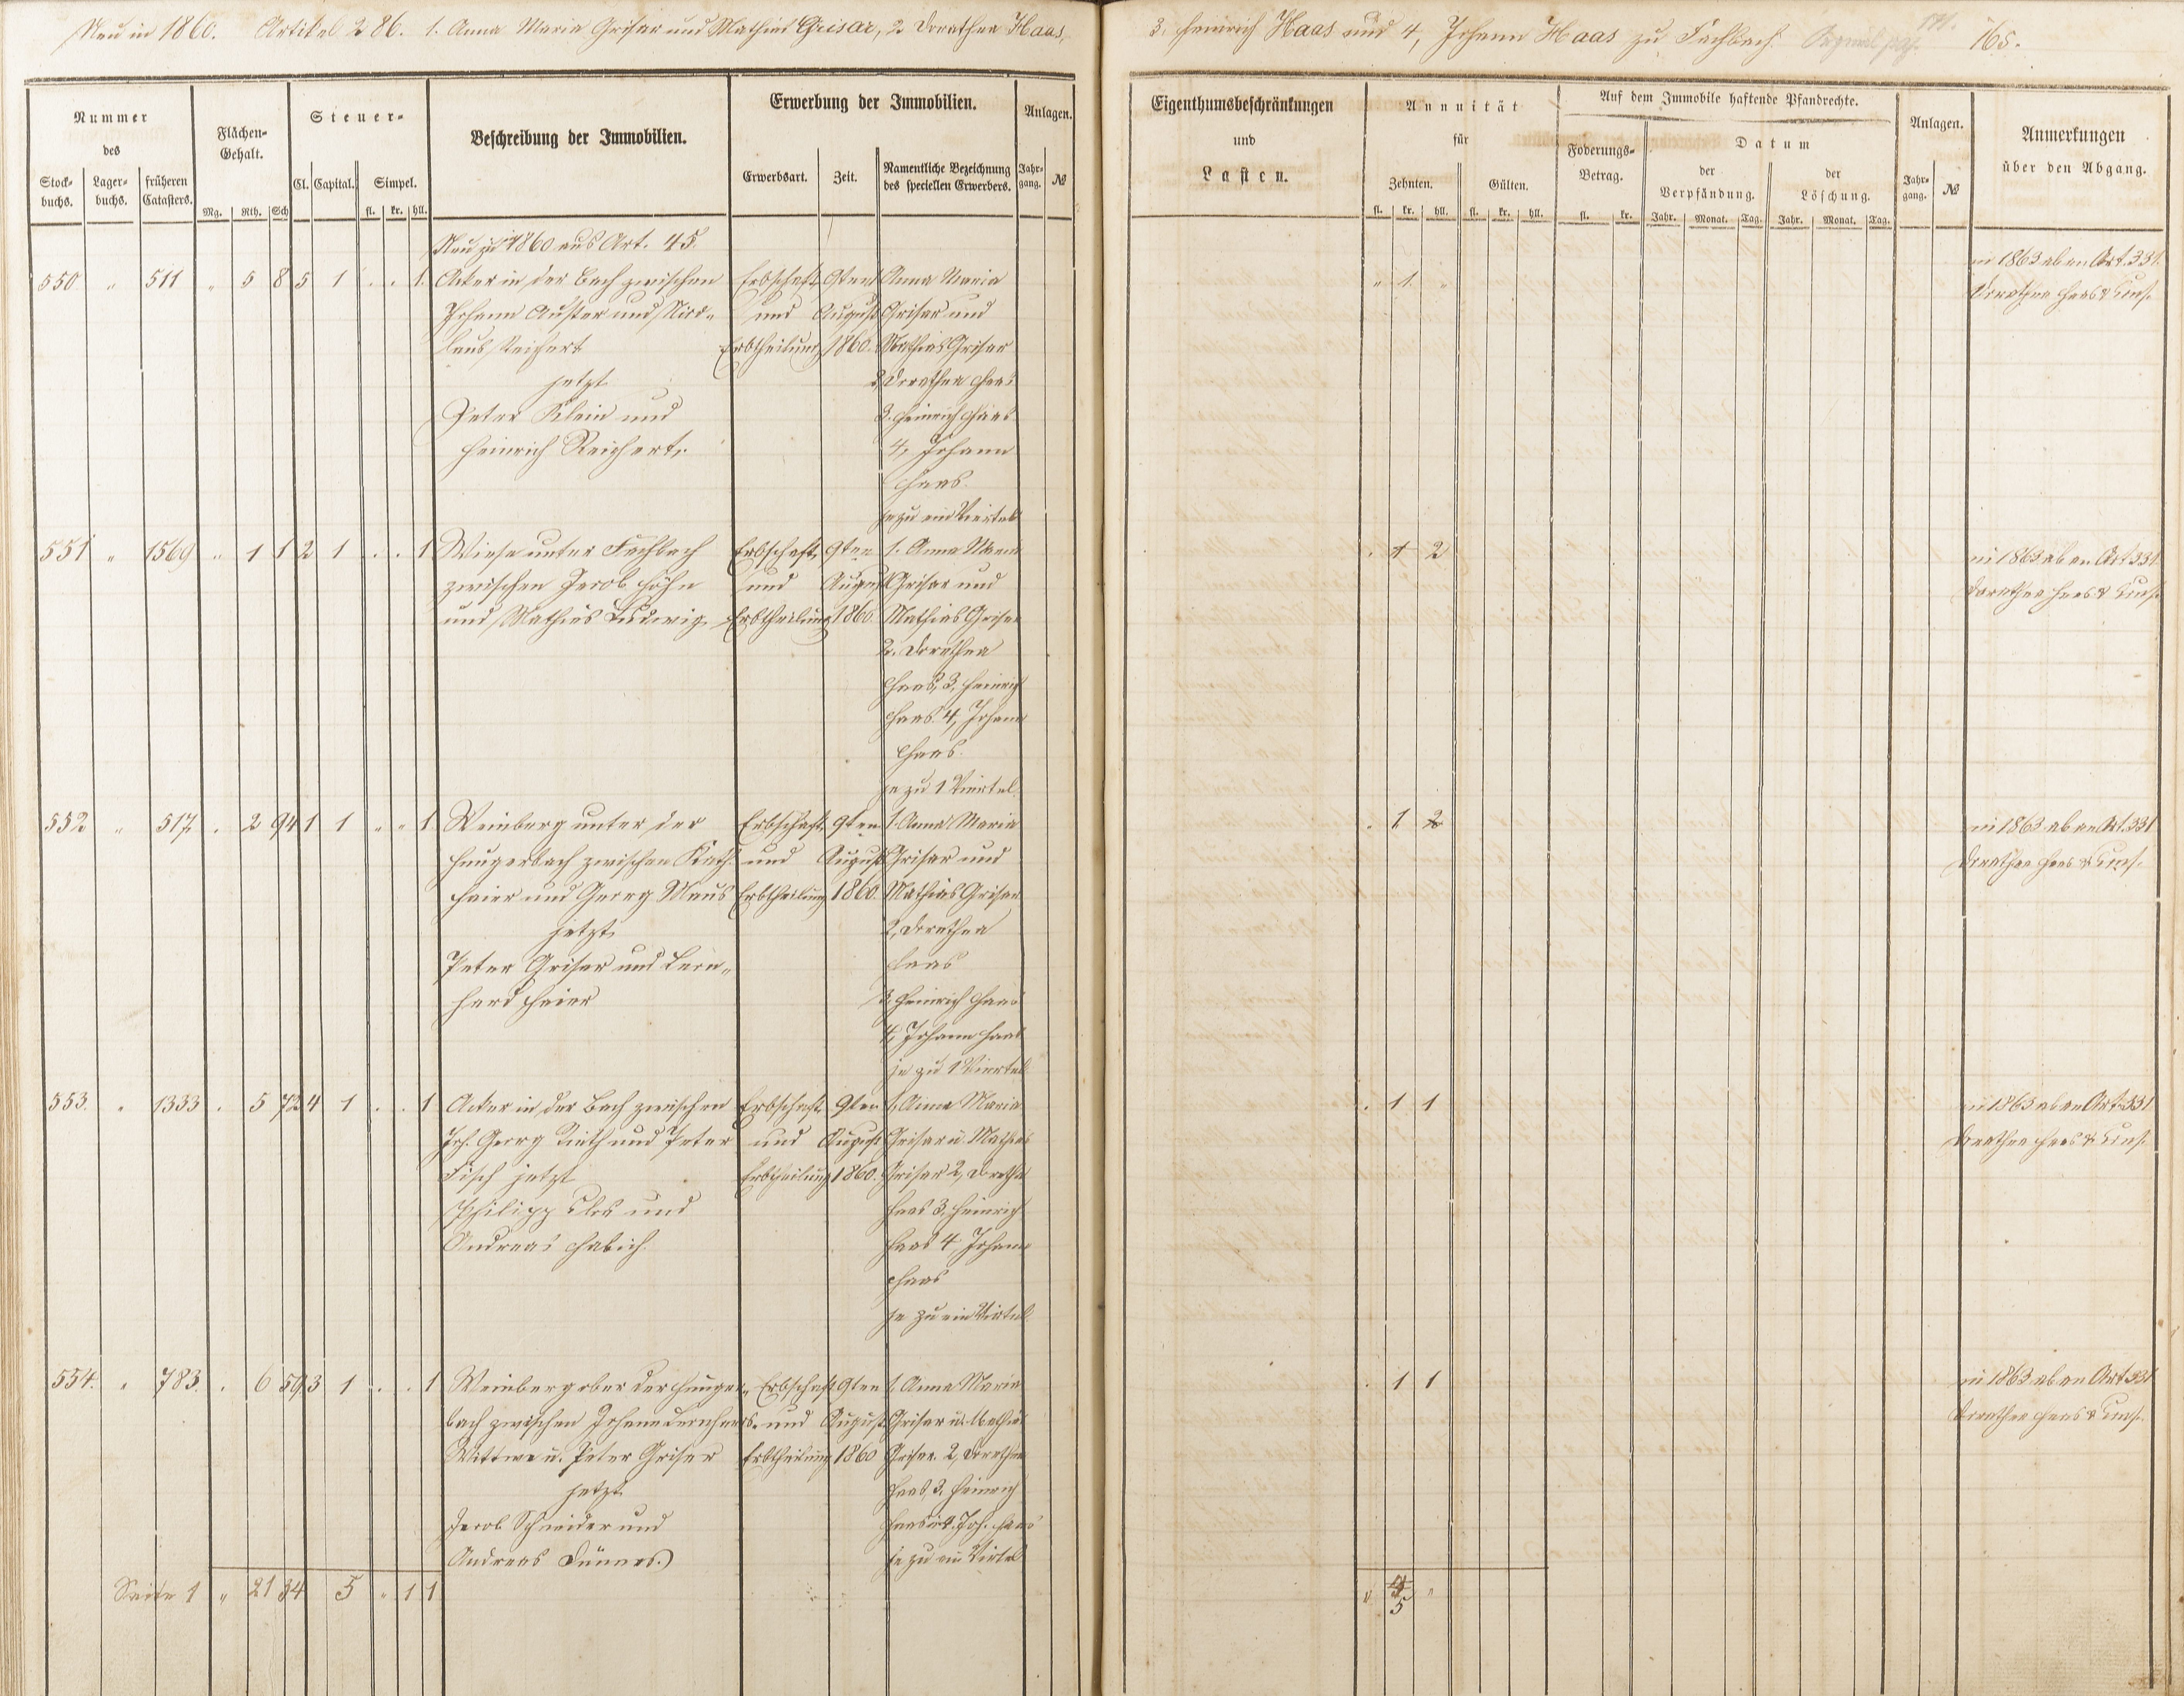 Neu in 1860. Artikel 286. 1. Anna Maria Griser und Mathias Grisar, 2 Dorathea Haas,
3. Heinrich Haas und 4, Johann Haas zu Fachbach.
165.
Nummer
des
Stock-
buchs.
Lager-
buchs.
früheren
Catasters.
Flächen-
Gehalt.
Mg. Rth. Sch
Steuer-
Cl. Capital. Simpel.
fl. kr. hll.
Beschreibung der Immobilien.
Erwerbung der Immobilien.
Erwerbsart. Zeit.
Namentliche Bezeichnung
des speciellen Erwerbers.
Anlagen.
Jahr-
gang. №
Eigenthumsbeschränkungen
und
Lasten.
Annuität
für
Zehnten. Gülten.
fl. kr. hll. fl. kr. hll.
Auf dem Immobile haftende Pfandrechte.
Foderungs-
Betrag.
fl. kr.
Datum
der
Verpfändung.
Jahr. Monat. Tag.
der
Löschung.
Jahr. Monat. Tag.
Anlagen.
Jahr-
gang. №
Anmerkungen
über den Abgang.
Neu zu 1860 aus Art. 45.
550 " 511 " 5 8 5 1 . . 1.
Acker in der Bach zwischen
Johann Auster und Nico-
laus Reichert
jetzt
Peter Klein und
Heinrich Reichert.
Erbschaft
und
Erbtheilung
9ten
August
1860.
Anna Maria
Griser und
Mathias Griser
2, Dorathea Haas
3. Heinrich Haas
4, Johann
Haas.
je zu ein Viertel
" 1. "
in 1863 ab an Art. 331.
Dorathea Haas & Cons.
551 " 1569 " 1 1 2 1 . . 1
Wiese unter Fachbach
zwischen Jacob Höhn
und Mathias Ludwig
Erbschaft
und
Erbtheilung
9ten
August
1860.
1. Anna Maria
Griser und
Mathias Griser
2. Dorathea
Haas, 3, Heinrich
Haas. 4, Johann
Haas.
je zu 1 Viertel.
. 1 2
in 1863 ab an Art 331.
Dorathea Haas & Cons.
552 " 517. . 2 94 1 1 " " 1
Weinberg unter der
Hungerbach zwischen Kath.
Heier und Georg Maus
jetzt
Peter Griser und Bern-
hard Heier
Erbschaft
und
Erbtheilung
9ten
August
1860.
1. Anna Maria
Griser und
Mathias Griser
2, Dorathea
Haas
3, Heinrich Haas
4, Johann Haas
je zu 1 Viertel
. 1. 2
in 1863 ab an Art. 331
Dorathea Haas & Cons.
553. " 1333 . 5 72 4 1 . . 1
Acker in der Bach zwischen
Joh. Georg Rieth und Peter
Fisch jetzt
Philipp Clos und
Andreas Habich.
Erbschaft
und
Erbtheilung
9ten
August
1860.
1, Anna Maria
Griser u. Mathias
Griser 2, Dorathea
Haas 3, Heinrich
Haas 4, Johann
Haas
je zu ein Viertel
. 1 1
in 1863 ab an Art. 331
Dorathea Haas & Cons.
554. " 783. . 6 59 3 1 . . 1
Weinberg ober der Hunger-
bach zwischen
Wittwe u. Peter Griser
jetzt
Jacob Schneider und
Andreas Dünnes.)
Erbschaft
und
Erbtheilung
9ten
August
1860
1, Anna Maria
Griser u. Mathias
Griser. 2, Dorathea
Haas, 3. Heinrich
Haas u 4. Joh. Haas
je zu ein Viertel.
. 1 1
in 1863 ab an Art 331
Dorathea Haas & Cons.
Seite 1 " 21 34 5 " 1 1
" 5 "